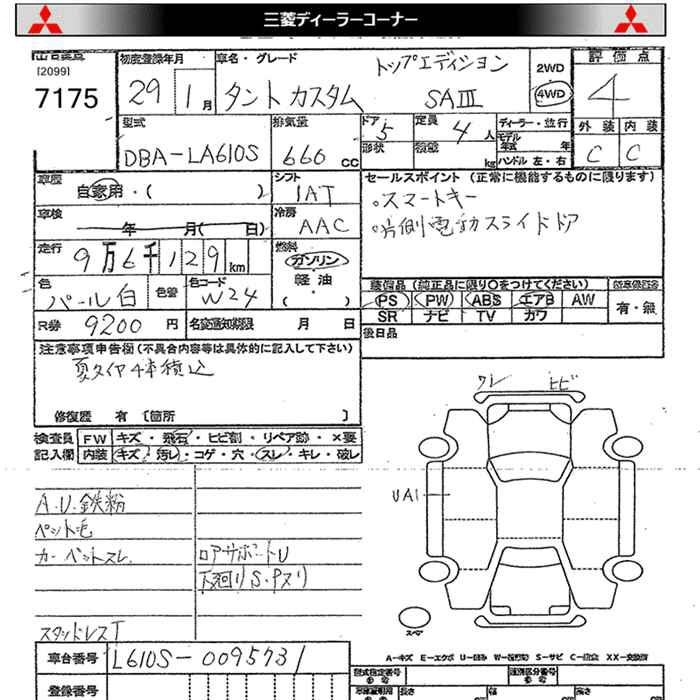 三菱ディーラーコーナー
[2099]
7175
初度登録年月
29 1月
車名・グレード
トップエディション
タント カスタム SAIII
2WD
4WD
評価点
4
外装 内装
C C
型式
DBA-LA610S
排気量
660 cc
ドア 5
形状
定員 4 人
kg
ディーラー・並行
モデル年式 年
ハンドル 左・右
車歴
自家用・( )
シフト
IAT
セールスポイント (正常に機能するものに限ります)
。スマートキー
。片側電動スライドドア
車検
年 月( 日)
冷房
AAC
走行
9万6千129km
燃料
ガソリン
軽油
( )
色
パール白
色替
色コード
W24
装備品 (純正品に限り○をつけてください)
PS PW ABS エアB AW
SR ナビ TV カワ
有・無
R券 9200 円
名変通知期限 月 日
後日品
注意事項申告欄 (不具合内容等は具体的に記入して下さい)
夏タイヤ4本積込
修復歴 有 〔箇所 〕
検査員
記入欄
FW キズ・飛石・ヒビ割・リペア跡・×要
内装 キズ・汚レ・コゲ・穴・スレ・キレ・破レ
ワレ ヒビ
UA1
A.U.鉄粉
ペット毛
カーペットスレ
ロアサポートU
下廻りS・Pヌリ
スタッドレスT
スペア
A-キズ E-エクボ U-凹み W-補修跡 S-サビ C-腐食 XX-交換済
車台番号
L610S-0095731
登録番号
型式指定番号
類別区分番号
長さ
幅
高さ